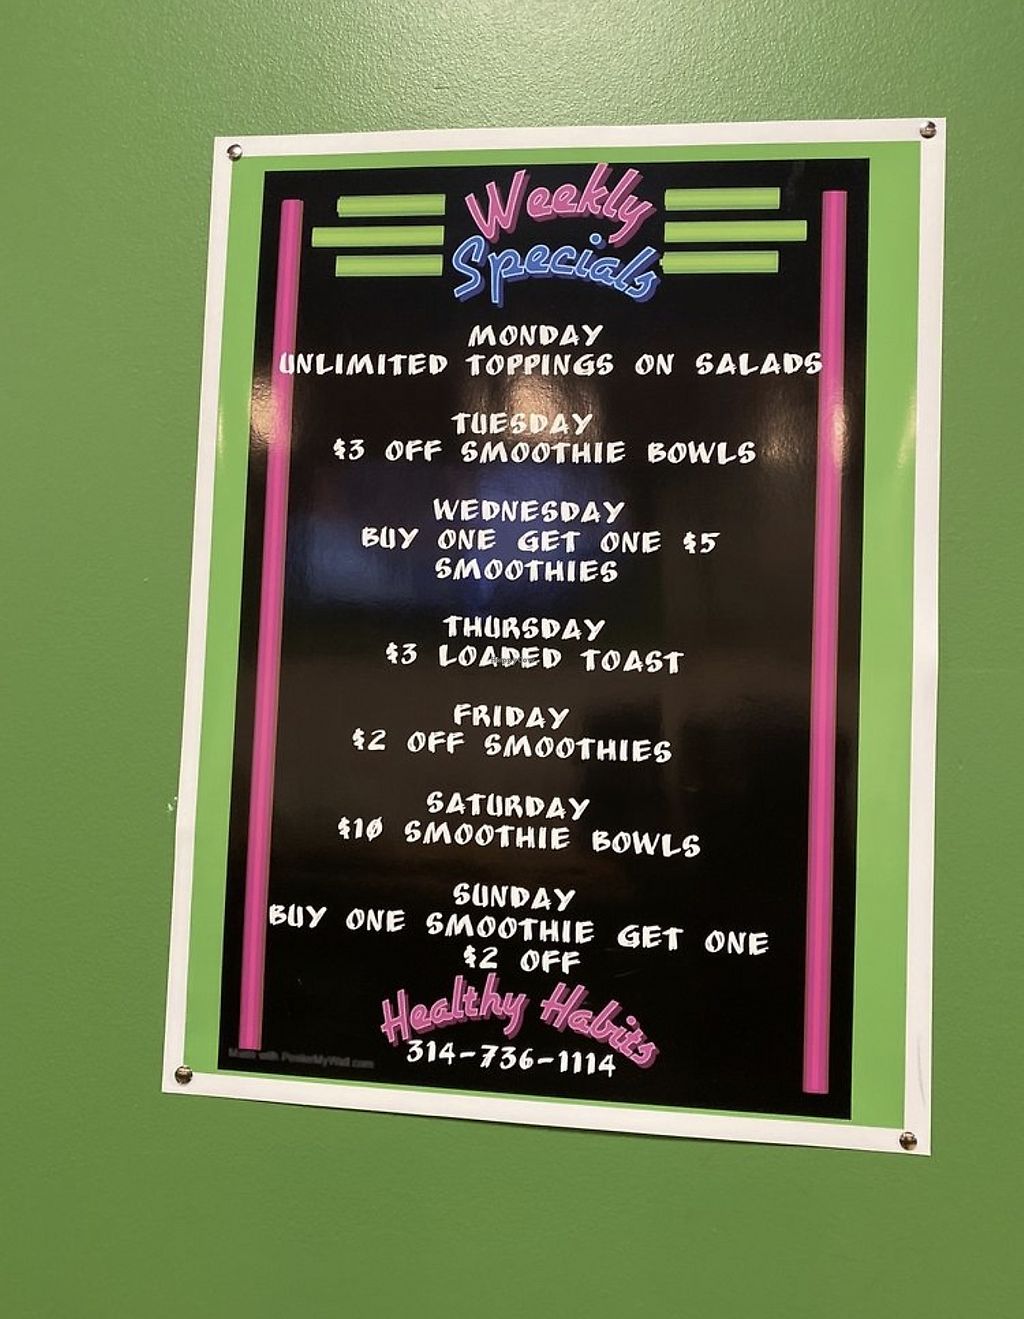 Weekly
Specials
MONDAY
UNLIMITED TOPPINGS ON SALADS
TUESDAY
$3 OFF SMOOTHIE BOWLS
WEDNESDAY
BUY ONE GET ONE $5
SMOOTHIES
THURSDAY
$3 LOADED TOAST
FRIDAY
$2 OFF SMOOTHIES
SATURDAY
$10 SMOOTHIE BOWLS
SUNDAY
BUY ONE SMOOTHIE GET ONE
$2 OFF
Healthy Habits
314-736-1114
Made with PosterMyWall.com